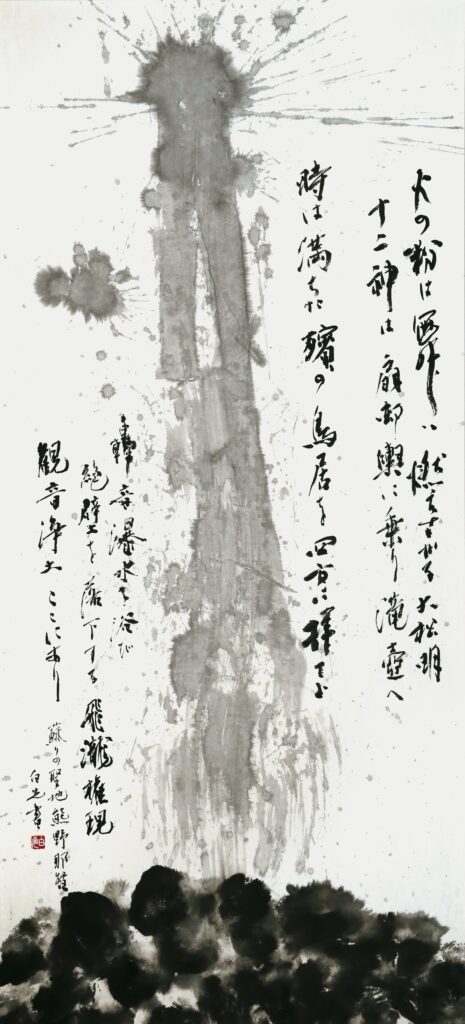 火の粉は に燃えさかる大松明
十二神は扇御輿に乗り滝壺へ
時は満ちた 殯の鳥居を四方に拝
轟音瀑水を浴び
絶壁を落下する飛瀧権現
観音浄土ここにあり
蘇りの聖地熊野那智
白光書